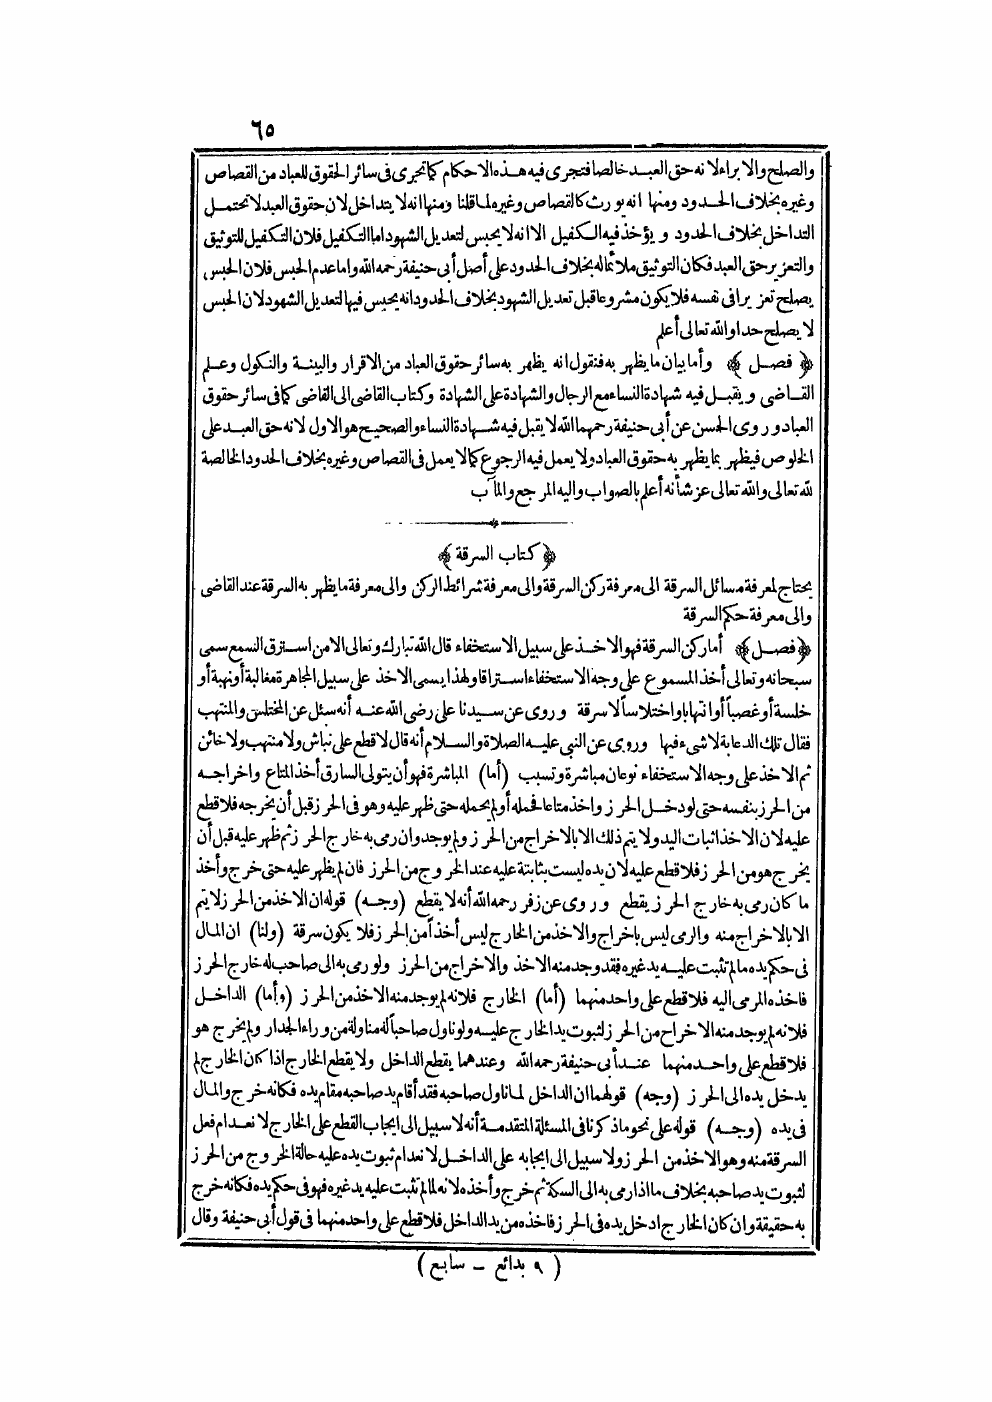 ٦٥
والصلح والابراء لانه حق العبد خالصا فتجرى فيه هذه الاحكام كما تجرى فى سائر الحقوق للعباد من القصاص
وغيره بخلاف الحدود ومنها انه يورث كالقصاص وغيره لما قلنا ومنها انه لا يتداخل لان حقوق العبد لا تحتمل
التداخل بخلاف الحدود و يؤخذ فيه الكفيل الا انه لا يحبس لتعديل الشهود اما التكفيل فلان التكفيل للتوثيق
والتعزير حق العبد فكان التوثيق ملائما له بخلاف الحدود على أصل أبى حنيفة رحمه الله واما عدم الحبس فلان الحبس
يصلح تعزيرا فى نفسه فلا يكون مشروعا قبل تعديل الشهود بخلاف الحدود انه يحبس فيها لتعديل الشهود لان الحبس
لا يصلح حدا والله تعالى أعلم
﴿ فصل ﴾ وأما بيان ما يظهر به فنقول انه يظهر به سائر حقوق العباد من الاقرار والبينة والنكول وعلم
القاضى و يقبل فيه شهادة النساء مع الرجال والشهادة على الشهادة وكتاب القاضى الى القاضى كما فى سائر حقوق
العباد وروى الحسن عن أبى حنيفة رحمهما الله لا يقبل فيه شهادة النساء والصحيح هو الاول لانه حق العبد على
الخلوص فيظهر بما يظهر به حقوق العباد ولا يعمل فيه الرجوع كما لا يعمل فى القصاص وغيره بخلاف الحدود الخالصة
لله تعالى والله تعالى عز شأنه أعلم بالصواب واليه المرجع والمآب
﴿ كتاب السرقة ﴾
يحتاج لمعرفة مسائل السرقة الى معرفة ركن السرقة والى معرفة شرائط الركن والى معرفة ما يظهر به السرقة عند القاضى
والى معرفة حكم السرقة
﴿ فصل ﴾ أما ركن السرقة فهو الاخذ على سبيل الاستخفاء قال الله تبارك وتعالى الا من استرق السمع سمى
سبحانه وتعالى أخذ المسموع على وجه الاستخفاء استراقا ولهذا يسمى الاخذ على سبيل المجاهرة مغالبة أو نهبة أو
خلسة أو غصباً أو انتهابا واختلاساً لا سرقة وروى عن سيدنا على رضى الله عنه أنه سئل عن المختلس والمنتهب
فقال تلك الدعابة لا شىء فيها وروى عن النبى عليه الصلاة والسلام أنه قال لا قطع على نباش ولا منتهب ولا خائن
ثم الاخذ على وجه الاستخفاء نوعان مباشرة وتسبب (أما) المباشرة فهو أن يتولى السارق أخذ المتاع واخراجه
من الحرز بنفسه حتى لو دخل الحرز واخذ متاعا فحمله أو لم يحمله حتى ظهر عليه وهو فى الحرز قبل أن يخرجه فلا قطع
عليه لان الاخذ اثبات اليد ولا يتم ذلك الا بالاخراج من الحرز ولم يوجد وان رمى به خارج الحرز ثم ظهر عليه قبل أن
يخرج هو من الحرز فلا قطع عليه لان يده ليست بثابتة عليه عند الخروج من الحرز فان لم يظهر عليه حتى خرج وأخذ
ما كان رمى به خارج الحرز يقطع وروى عن زفر رحمه الله أنه لا يقطع (وجه) قوله ان الاخذ من الحرز لا يتم
الا بالاخراج منه والرمى ليس باخراج والاخذ من الخارج ليس أخذاً من الحرز فلا يكون سرقة (ولنا) ان المال
فى حكم يده ما لم تثبت عليه يد غيره فقد وجد منه الاخذ والاخراج من الحرز ولو رمى به الى صاحب له خارج الحرز
فاخذه المرمى اليه فلا قطع على واحد منهما (أما) الخارج فلانه لم يوجد منه الاخذ من الحرز (وأما) الداخل
فلانه لم يوجد منه الاخراح من الحرز لثبوت يد الخارج عليه ولو ناول صاحباً له مناولة من وراء الجدار ولم يخرج هو
فلا قطع على واحد منهما عند أبى حنيفة رحمه الله وعندهما يقطع الداخل ولا يقطع الخارج اذا كان الخارج لم
يدخل يده الى الحرز (وجه) قولهما ان الداخل لما ناول صاحبه فقد أقام يد صاحبه مقام يده فكانه خرج والمال
فى يده (وجه) قوله على نحو ما ذكرنا فى المسئلة المتقدمة أنه لا سبيل الى ايجاب القطع على الخارج لانعدام فعل
السرقة منه وهو الاخذ من الحرز ولا سبيل الى ايجابه على الداخل لانعدام ثبوت يده عليه حالة الخروج من الحرز
لثبوت يد صاحبه بخلاف ما اذا رمى به الى السكة ثم خرج وأخذه لانه لما لم تثبت عليه يد غيره فهو فى حكم يده فكانه خرج
به حقيقة وان كان الخارج ادخل يده فى الحرز فاخذه من يد الداخل فلا قطع على واحد منهما فى قول أبى حنيفة وقال
( ٩ بدائع – سابع )